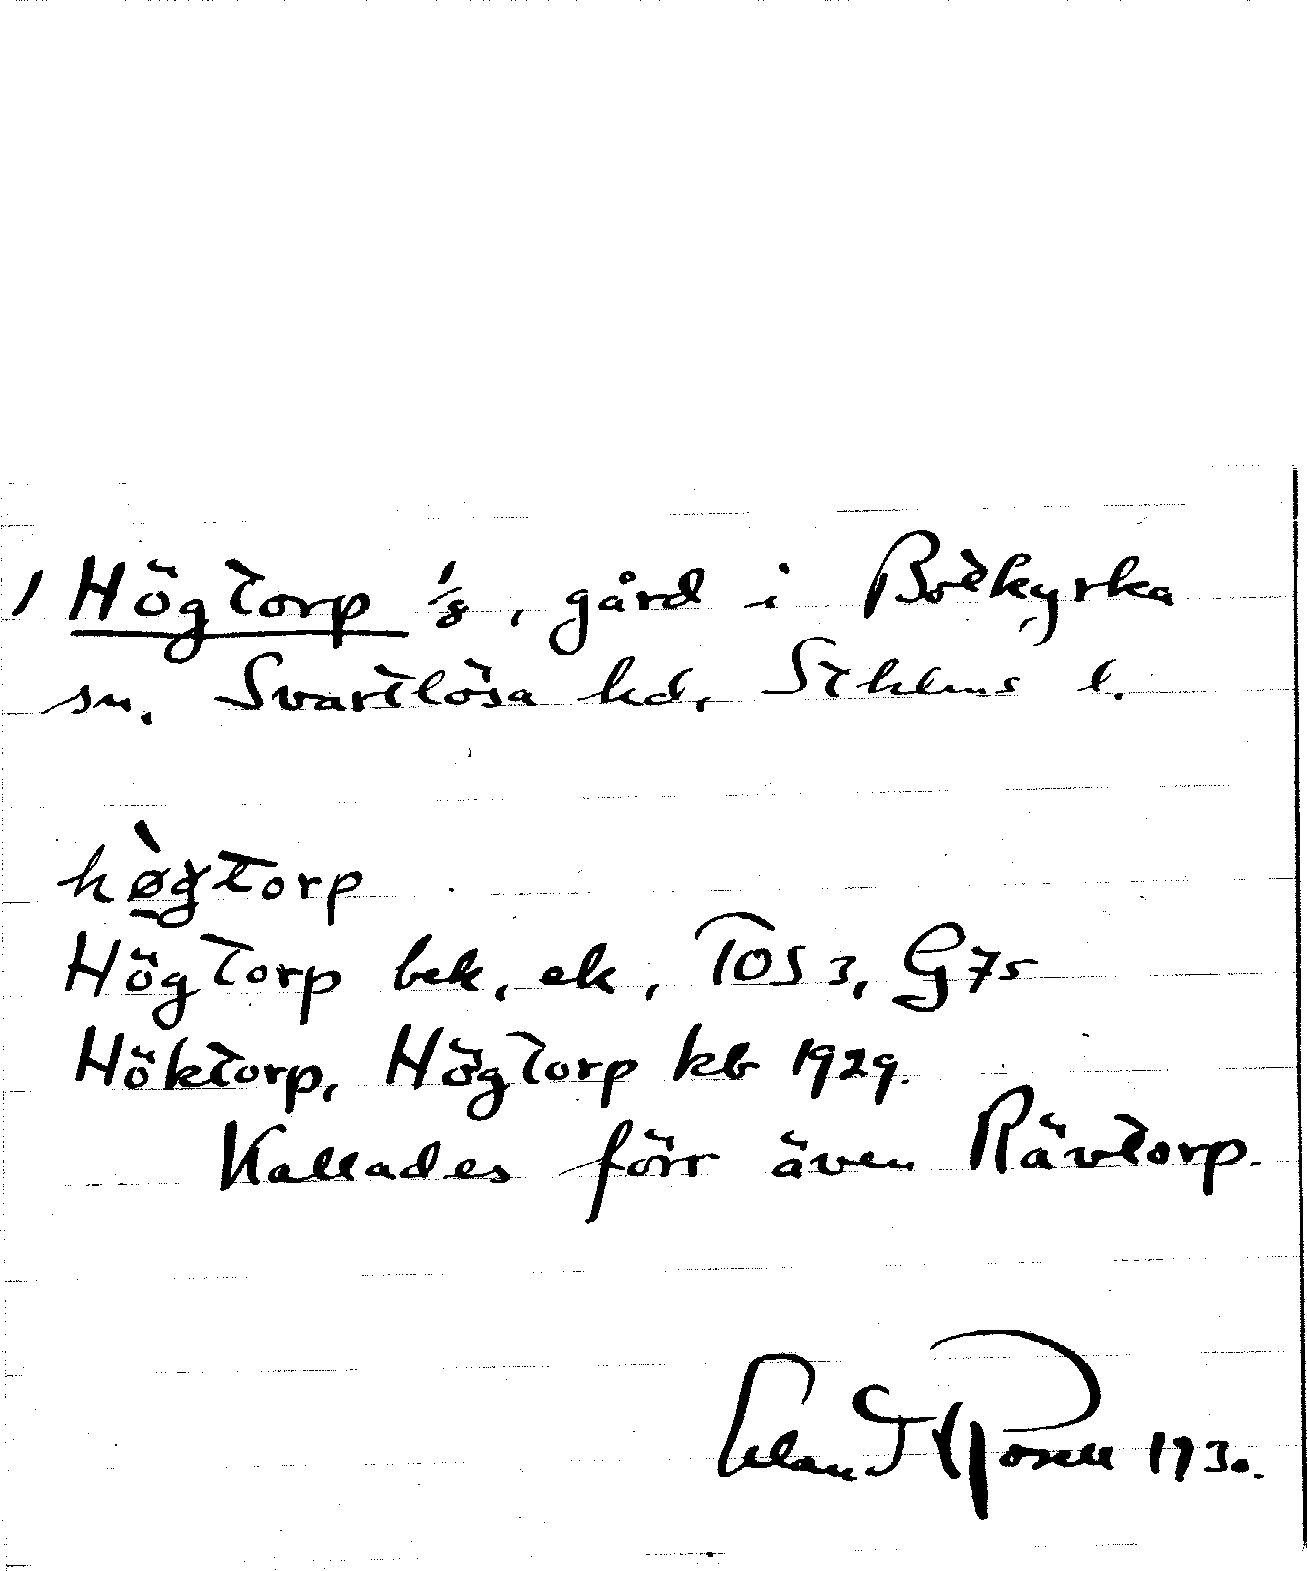 / Högtorp 1/8, gård i Botkyrka
sn. Svartlösa hd, Sthlms l.
hø̀gtorp
Högtorp bek, ek, TOS 3, G75
Höktorp, Högtorp kb 1929.
Kallades förr även Rävtorp.
Erland Rosell 1930.